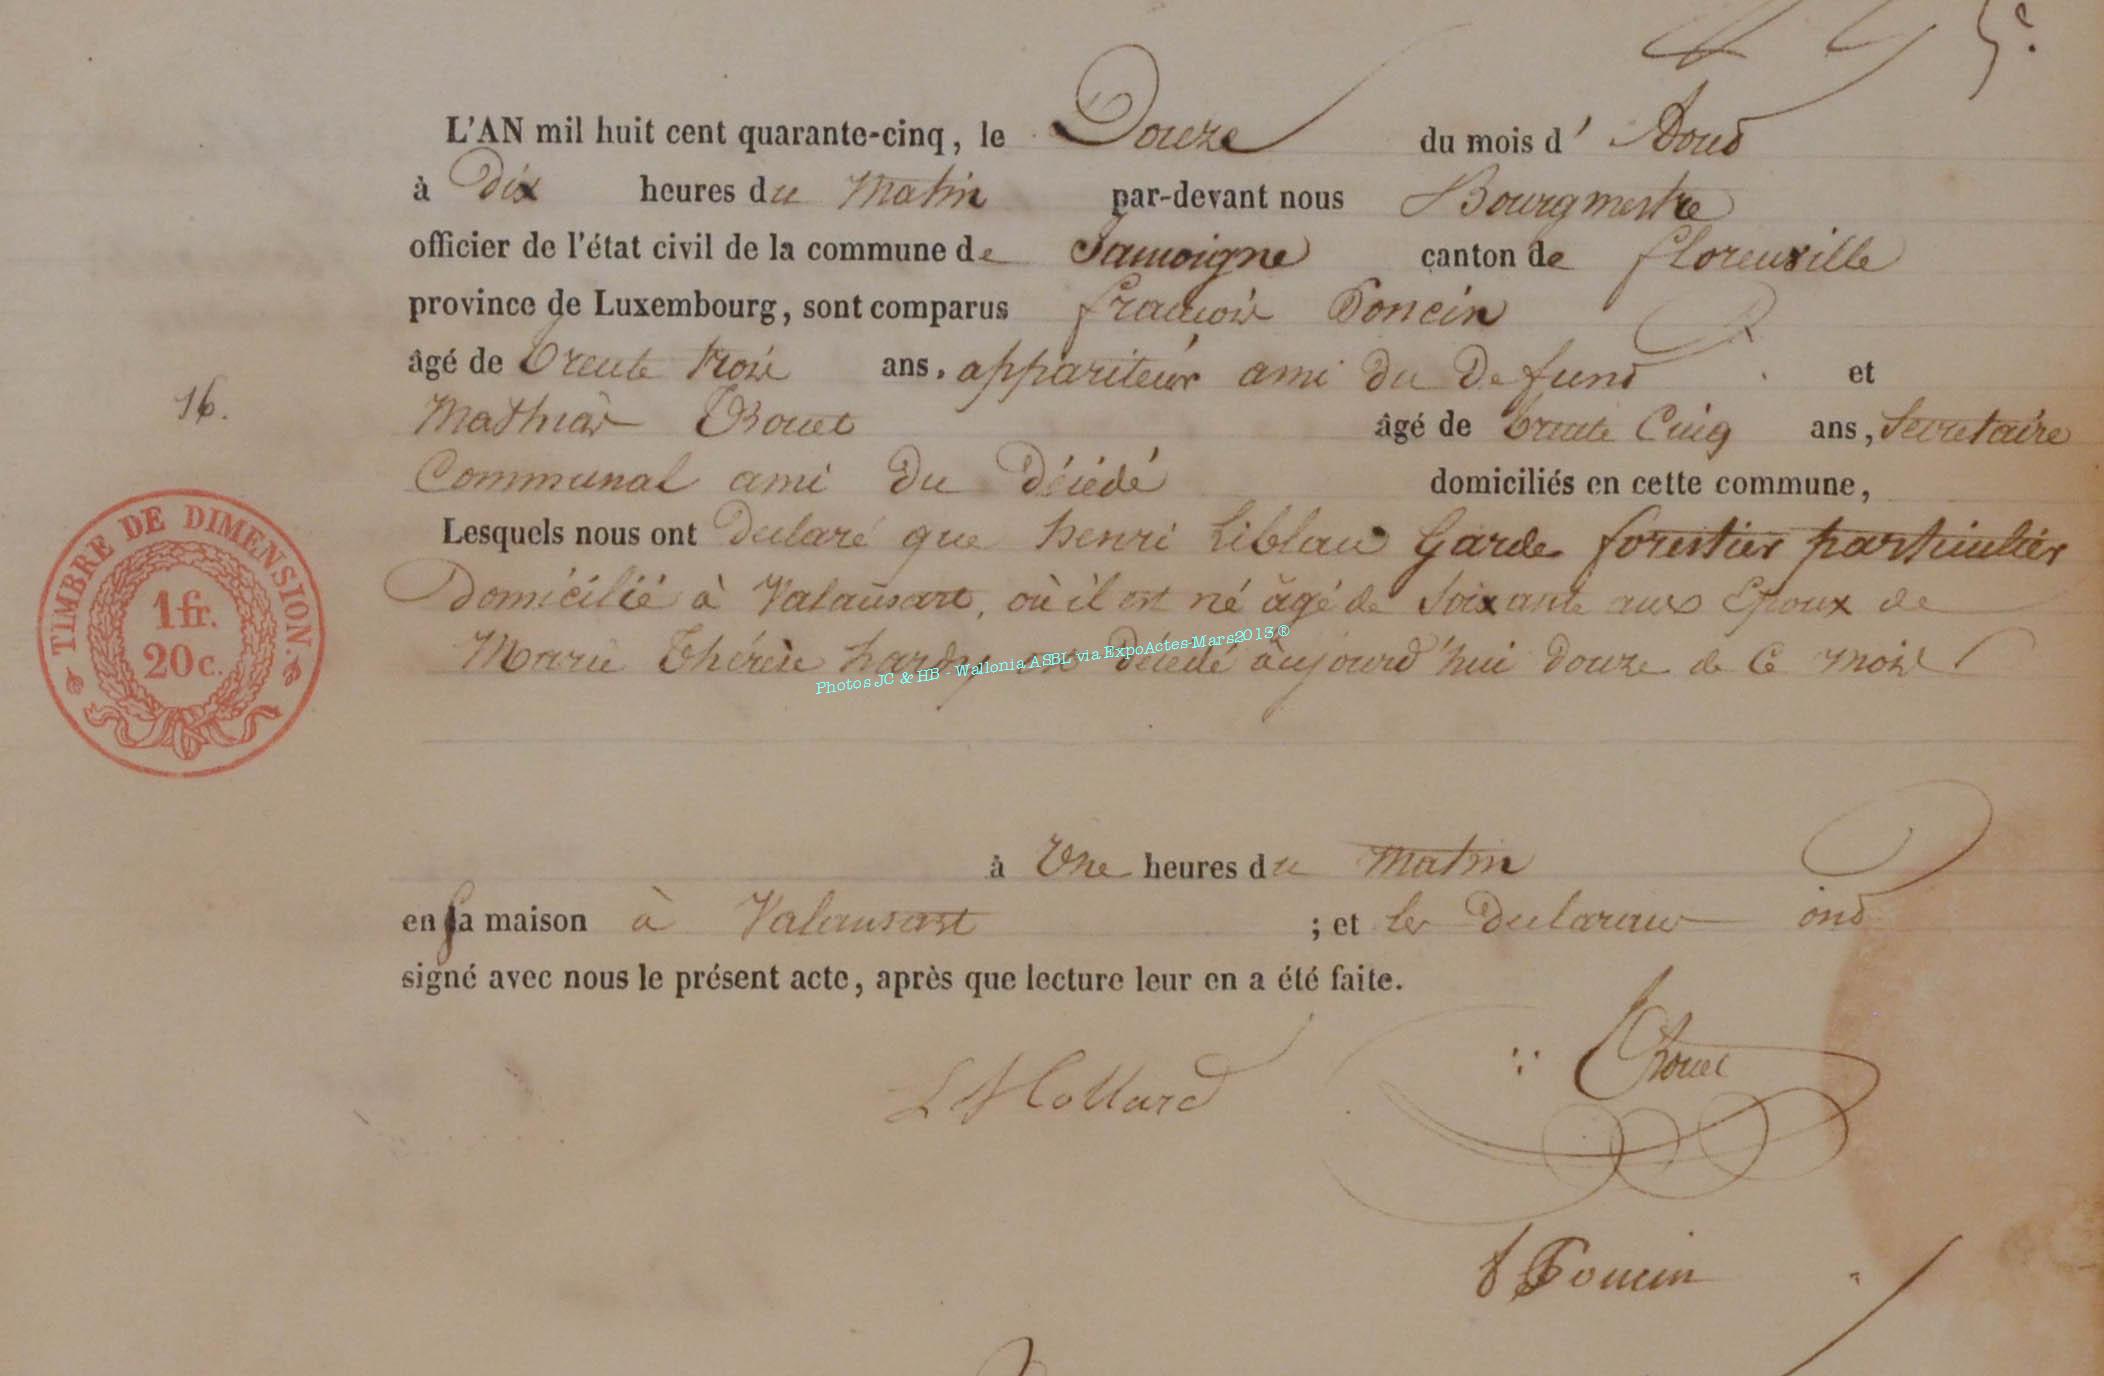 L'AN mil huit cent quarante-cinq, le Douze du mois d' Aout
à Dix heures du Matin par-devant nous Bourgmestre
officier de l'état civil de la commune de Jamoigne canton de florenville
province de Luxembourg, sont comparus françois Poncin
âgé de trente trois ans, appariteur ami du Defunt et
Mathias Thouet âgé de trente Cinq ans, Secretaire
16.
Communal ami du Décédé domiciliés en cette commune,
Lesquels nous ont Declaré que henri Liblau Garde forestier particulier
Domicilié à Valansart, où il est né âgé de Soixante ans Epoux de
Marie thérèse hardy, est Décédé aujourd'hui douze de Ce mois
TIMBRE DE DIMENSION.
1 fr.
20 c.
Photos JC & HB - Wallonia ASBL via ExpoActes-Mars2013 ®
à Une heures du Matin
en sa maison à Valansart ; et les Declarans ont
signé avec nous le présent acte, après que lecture leur en a été faite.
Thouet
Hollard
Poncin